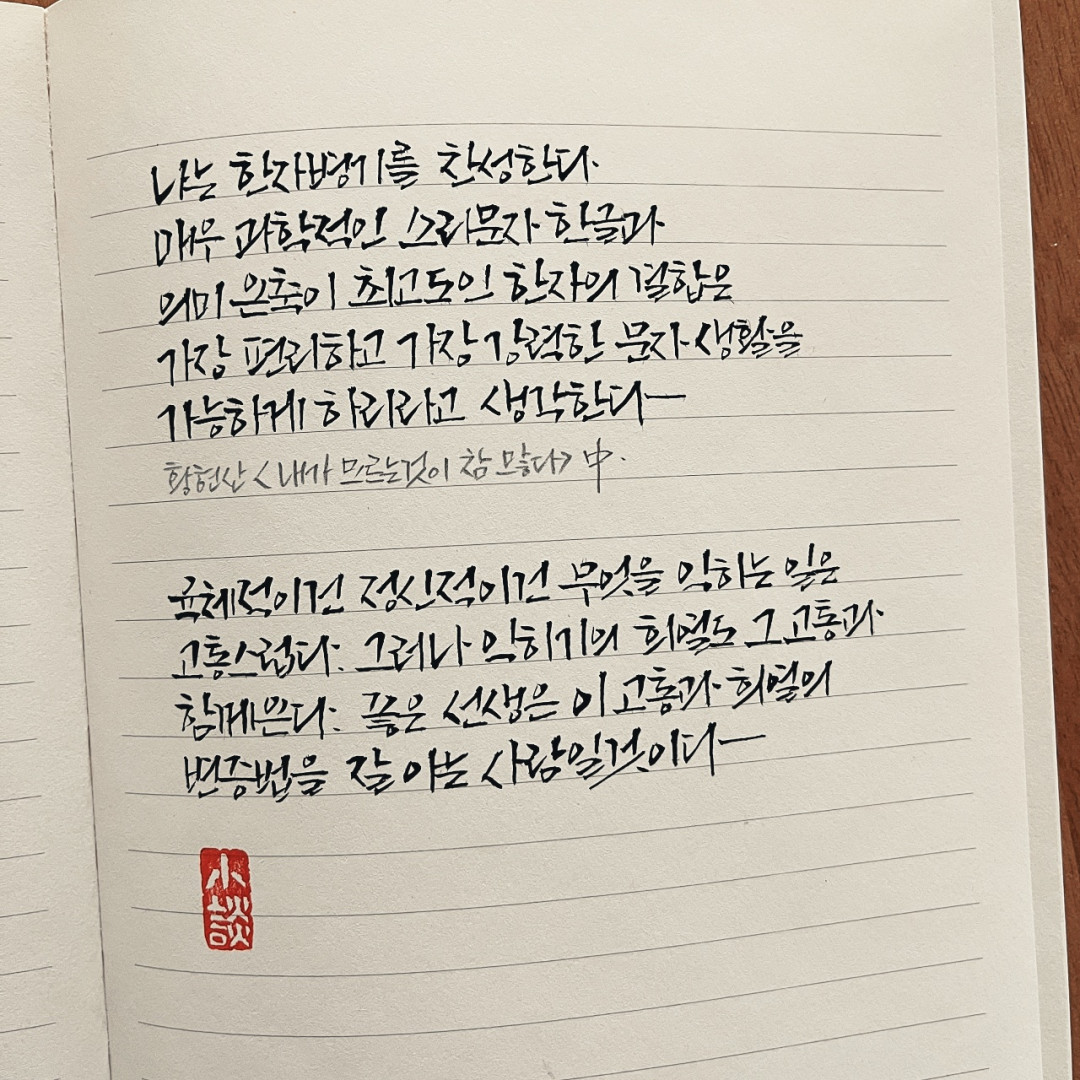 나는 한자병기를 찬성한다.
매우 과학적인 소리문자 한글과
의미 은축이 최고도인 한자의 결합은
가장 편리하고 가장 강력한 문자 생활을
가능하게 하리라고 생각한다—
황현산 <내가 모르는것이 참 많다> 中.
육체적이건 정신적이건 무엇을 익히는 일은
고통스럽다. 그러나 익히기의 희열도 그 고통과
함께온다. 좋은 선생은 이 고통과 희열의
변증법을 잘 아는 사람일것이다—
小談